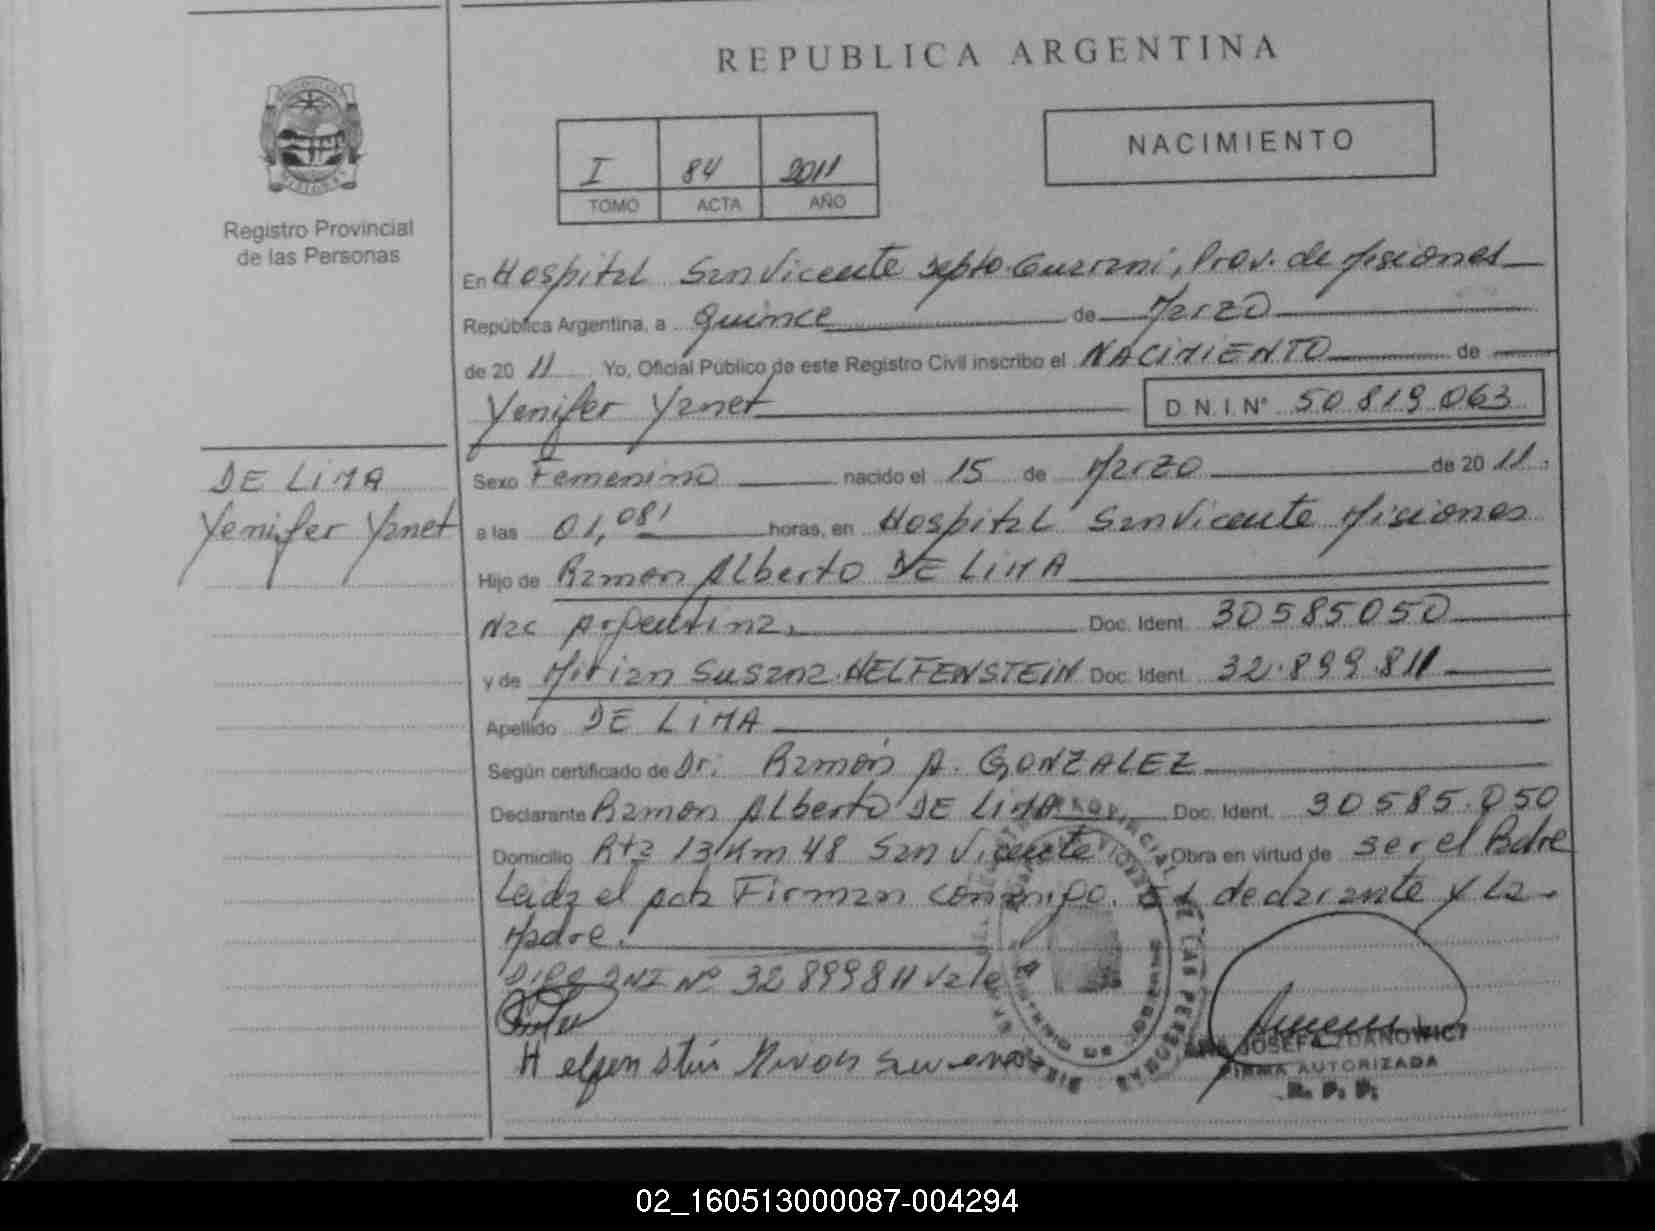 REPUBLICA ARGENTINA
NACIMIENTO
I 84 2011
TOMO ACTA AÑO
Registro Provincial
de las Personas
En Hospital San Vicente Depto. Guarani, Prov. de Misiones
República Argentina, a Quince de Marzo
de 20 11 Yo, Oficial Público de este Registro Civil inscribo el NACIMIENTO de
Yenifer Yanet D.N.I. Nº 50819063
DE LIMA
Yenifer Yanet
Sexo Femenino nacido el 15 de Marzo de 20 11.
a las 01,08' horas, en Hospital San Vicente Misiones
Hijo de Ramon Alberto DE LIMA
Nac Argentina. Doc. Ident. 30585050
y de Mirian Susana HELFENSTEIN Doc. Ident. 32.899.811
Apellido DE LIMA
Según certificado de Dr. Ramón A. GONZALEZ
Declarante Ramon Alberto DE LIMA Doc. Ident. 30585.050
Domicilio Rta 13 Km 48 San Vicente Obra en virtud de ser el Padre
Leida el acta Firman conmigo. El declarante y La
Madre.
DNI Nº 32899811 Vale
Helfenstein Mirian Susana
JOSEFA ZDANOWICZ
FIRMA AUTORIZADA
R. P. P.
02_160513000087-004294